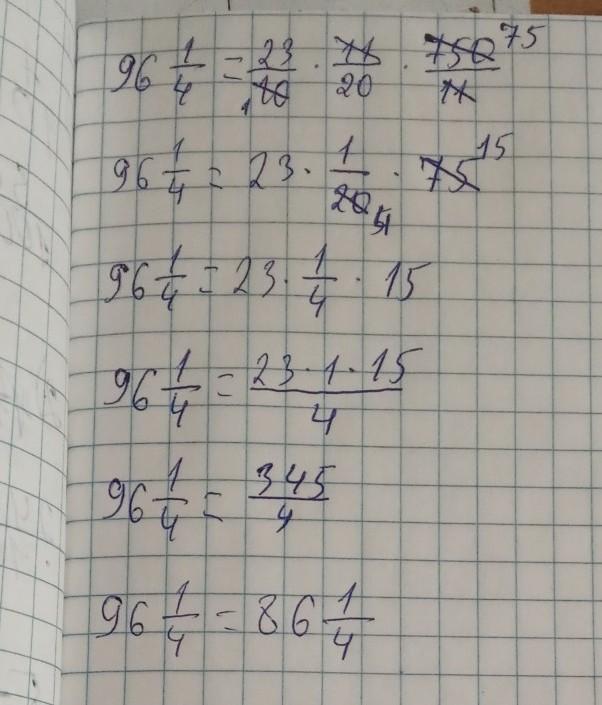 96 1/4 = 23/10 · 11/20 · 750/11 75 1
96 1/4 = 23 · 1/20 · 75 15 4
96 1/4 = 23 · 1/4 · 15
96 1/4 = 23·1·15/4
96 1/4 = 345/4
96 1/4 = 86 1/4